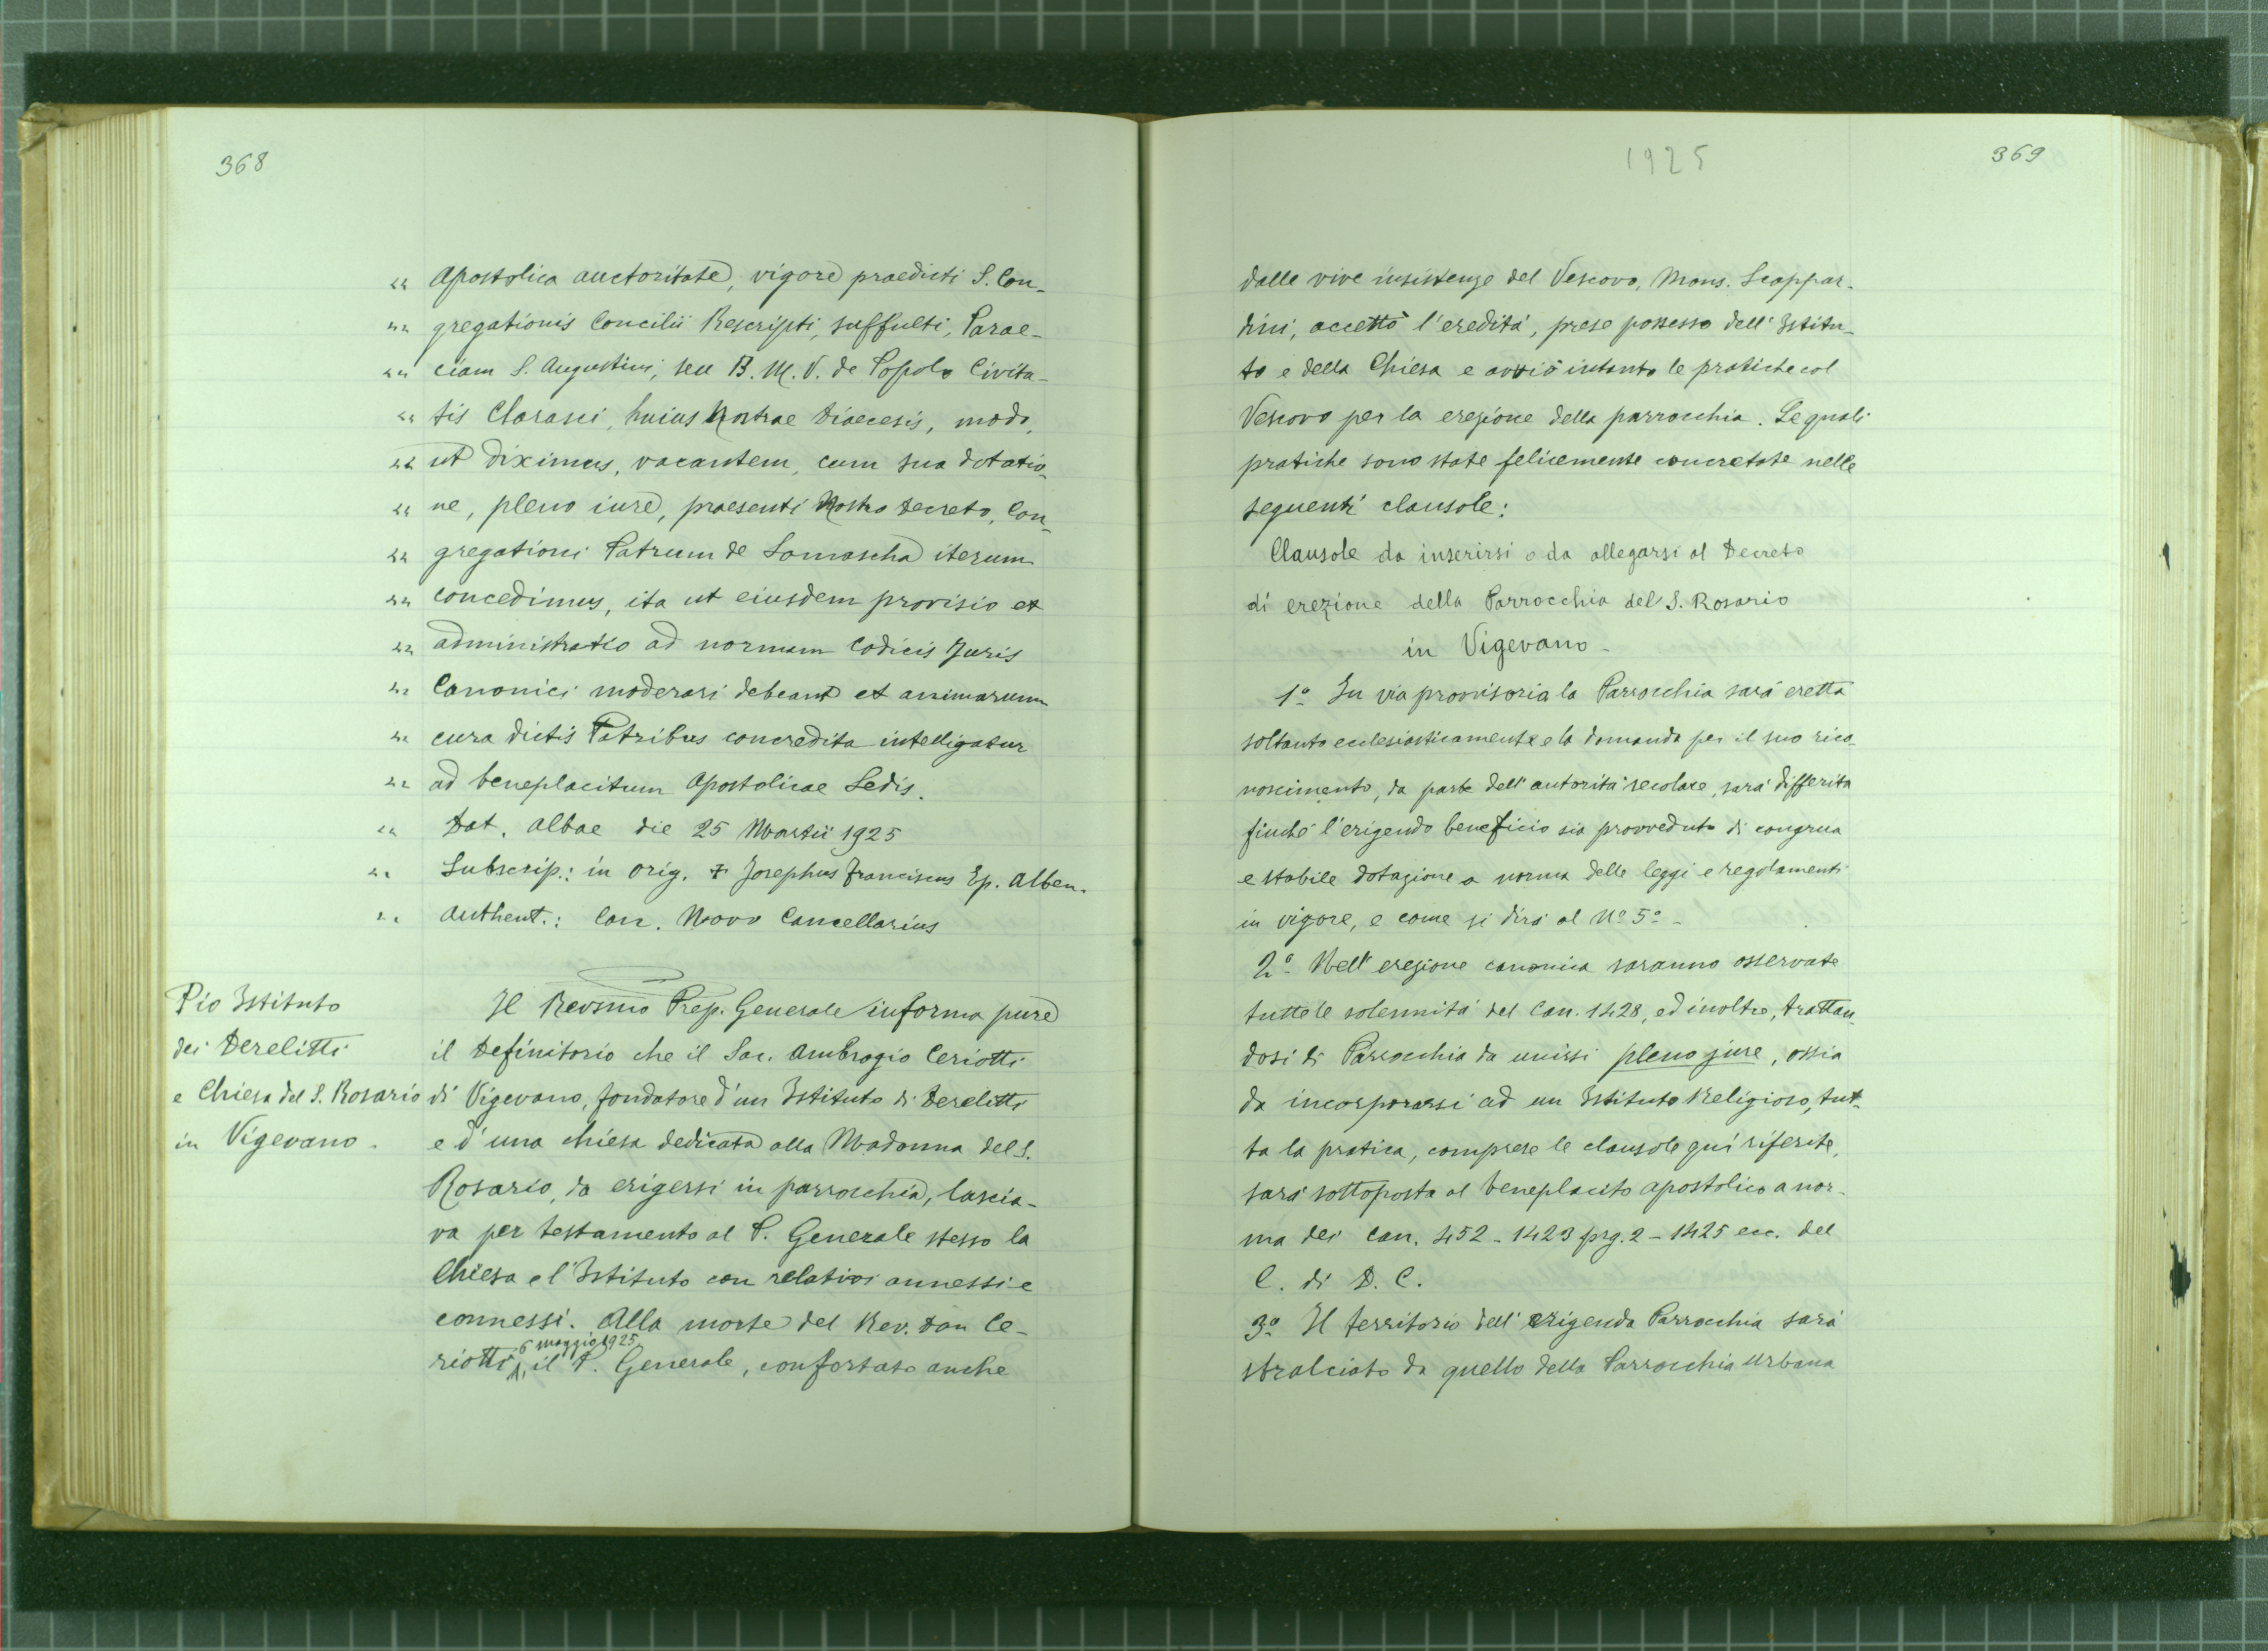 368
„ Apostolica auctoritate, vigore praedicti S. Con-
„ gregationis Concilii Rescripti, suffulti, Parae-
„ ciam S. Augustini, seu B. M. V. de Popolo Civita-
„ tis Clarasci, huius Nostrae Diaecesis, modo,
„ ut diximus, vacantem, cum sua dotatio-
„ ne, pleno iure, praesenti Nostro Decreto, Con-
„ gregationi Patrum de Somascha iterum
„ concedimus, ita ut eiusdem provisio et
„ administratio ad normam Codicis Juris
„ Canonici moderari debeant et animarum
„ cura dictis Patribus concredita intelligatur
„ ad beneplacitum Apostolicae Sedis.
„ Dat. Albae die 25 Martii 1925
„ Subscrip.: in orig. + Josephus Franciscus Ep. Alben.
„ Authent.: Can. Novo Cancellarius
Pio Istituto
dei Derelitti
e Chiesa del S. Rosario
in Vigevano -
Il Revsmo Prep. Generale informa pure
il Definitorio che il Sac. Ambrogio Ceriotti
di Vigevano, fondatore d'un Istituto di Derelitti
e d'una chiesa dedicata alla Madonna del S.
Rosario, da erigersi in parrocchia, lascia-
va per testamento al P. Generale stesso la
Chiesa e l'Istituto con relativi annessi e
connessi. Alla morte del Rev. Don Ce-
6 maggio 1925
riotti, il P. Generale, confortato anche
1925
369
dalle vive insistenze del Vescovo, Mons. Scappar-
dini, accettò l'eredità, prese possesso dell'Istitu-
to e della Chiesa e avviò intanto le pratiche col
Vescovo per la erezione della parrocchia. Le quali
pratiche sono state felicemente concretate nelle
seguenti clausole:
Clausole da inserirsi o da allegarsi al Decreto
di erezione della Parrocchia del S. Rosario
in Vigevano -
1º In via provvisoria la Parrocchia sarà eretta
soltanto ecclesiasticamente e la domanda per il suo rico-
noscimento, da parte dell'autorità secolare, sarà differita
finché l'erigendo beneficio sia provveduto di congrua
e stabile dotazione a norma delle leggi e regolamenti
in vigore, e come si dirà al Nº 5º -
2º Nell'erezione canonica saranno osservate
tutte le solennità del Can. 1428, ed inoltre, trattan-
dosi di Parrocchia da unirsi pleno jure, ossia
da incorporarsi ad un Istituto Religioso, tut-
ta la pratica, comprese le clausole qui riferite,
sarà sottoposta al beneplacito apostolico a nor-
ma dei Can. 452 - 1423 prg. 2 - 1425 ecc. del
C. di D. C.
3º Il territorio dell'erigenda Parrocchia sarà
stralciato da quello della Parrocchia urbana